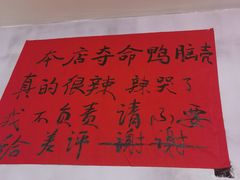 本店夺命鸭脑壳
真的很辣 辣哭了
我不负责 请不要
给差评 谢谢